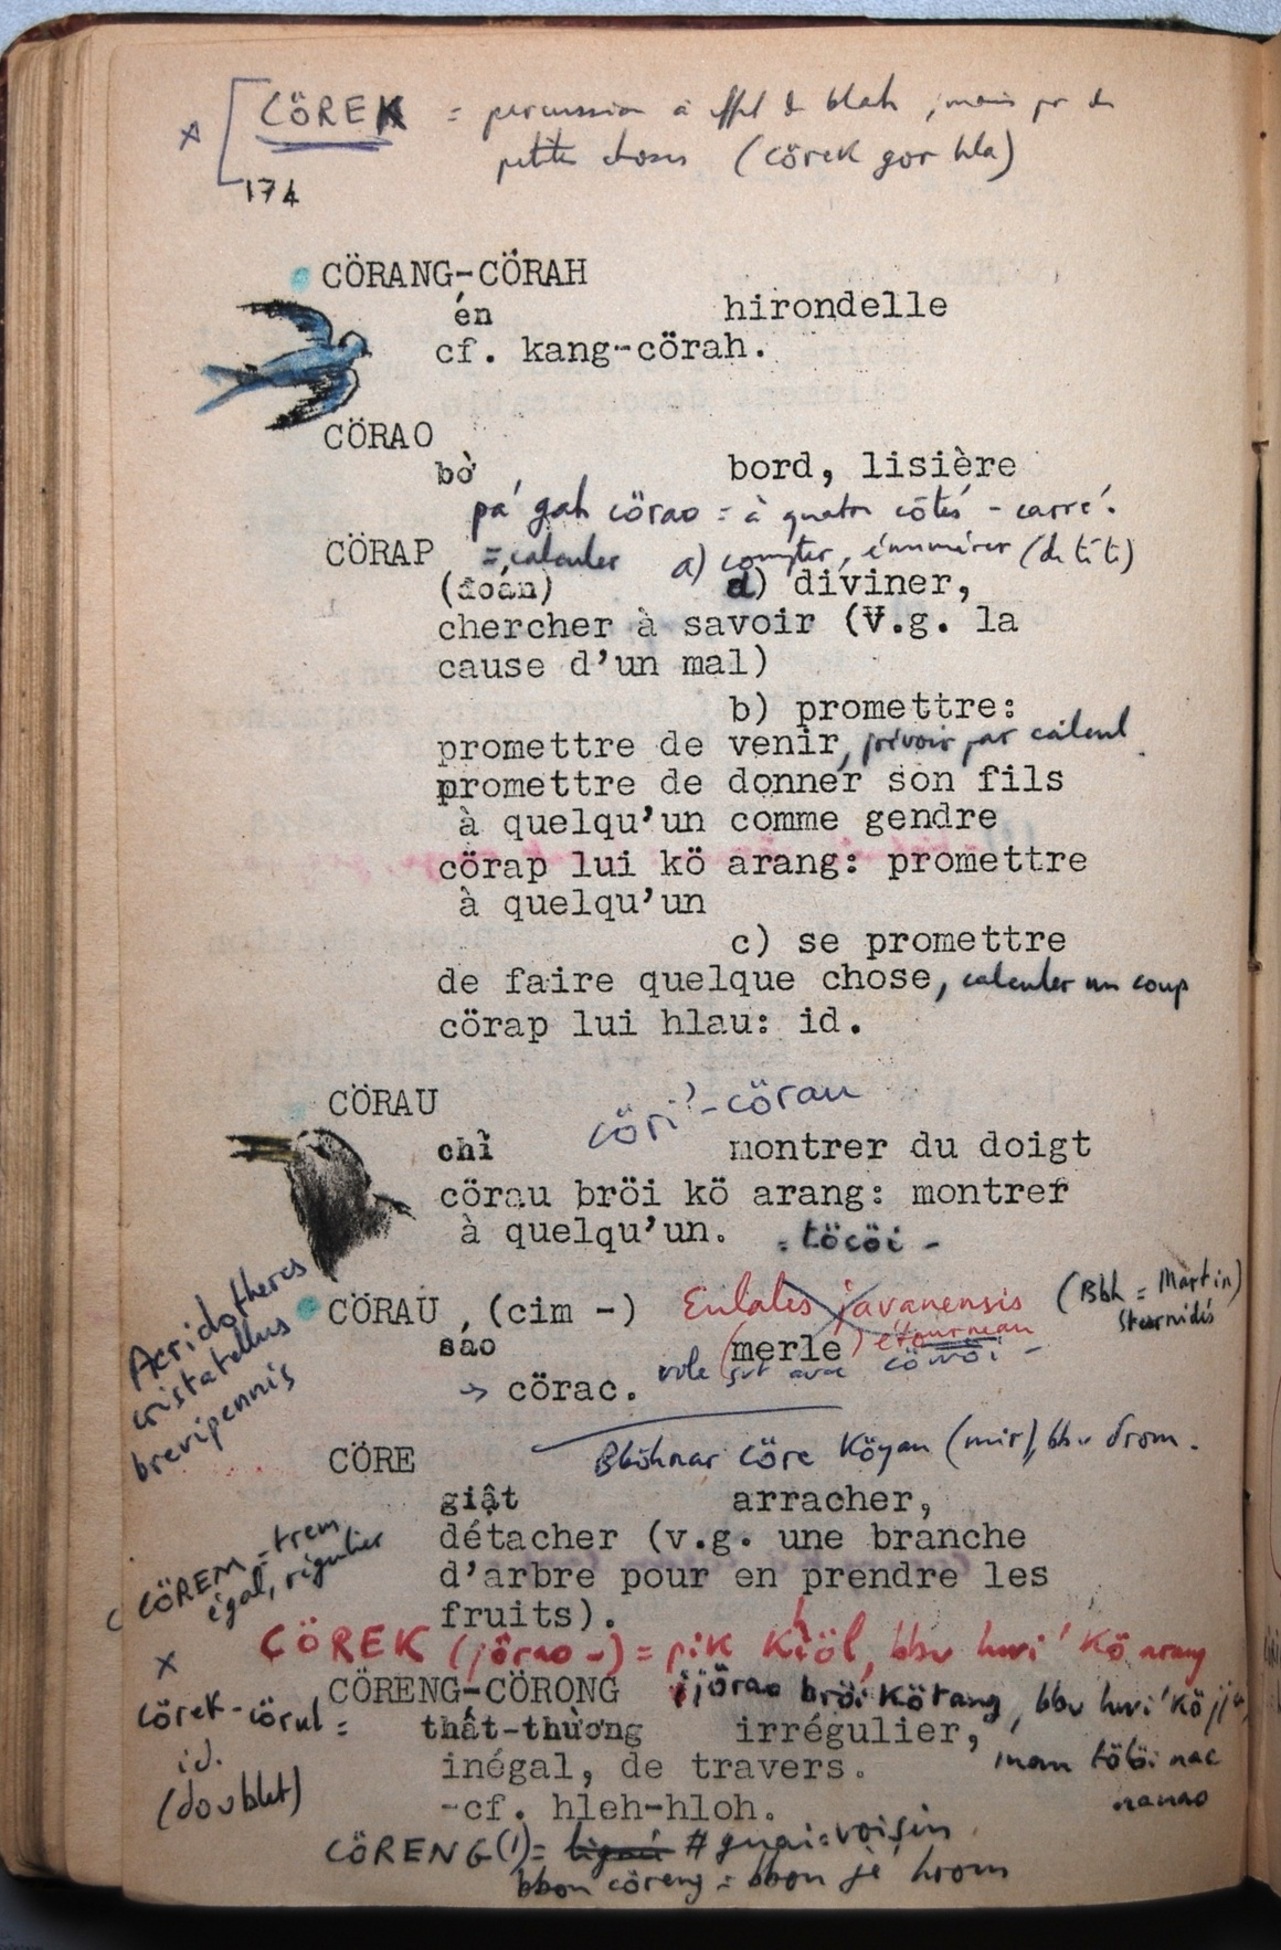 CÖREK = percussion à effet de blah, mais pr de
petites choses (cörek gor hla)
174
CÖRANG-CÖRAH
én hirondelle
cf. kang-cörah.
CÖRAO
bờ bord, lisière
pă gah cörao = à quatre côtés - carré.
CÖRAP = calculer a) compter, énumérer (de tí tí)
(đoán) d) diviner,
chercher à savoir (V.g. la
cause d'un mal)
b) promettre:
promettre de venir, prévoir par calcul
promettre de donner son fils
à quelqu'un comme gendre
cörap lui kö arang: promettre
à quelqu'un
c) se promettre
de faire quelque chose, calculer un coup
cörap lui hlau: id.
CÖRAU cöri'-cörau
chỉ montrer du doigt
cörau bröi kö arang: montrer
à quelqu'un. = töcöi -
CÖRAU, (cim -) Eulabes javanensis (Bbh = Martin)
Sturnidés
sáo (merle) étourneau
vole svt avec cömöi -
→ cörac.
Acridotheres
cristatellus
brevipennis
CÖRE Böhnar cöre köyau (mir), bbu drom.
giật arracher,
détacher (v.g. une branche
d'arbre pour en prendre les
fruits).
CÖREM = trem
égal, régulier
CÖREK (jörao -) = pik khöl, bbu huvi' kö arang
CÖRENG-CÖRONG jörao bröi kötang, bbu huvi' kö
cörek-cörul =
id.
(doublet)
thất-thường irrégulier,
inégal, de travers. inam töböi nac
nanao
-cf. hleh-hloh.
CÖRENG (1) = # guai = voisin
bbon cöreng = bbon jê hrom